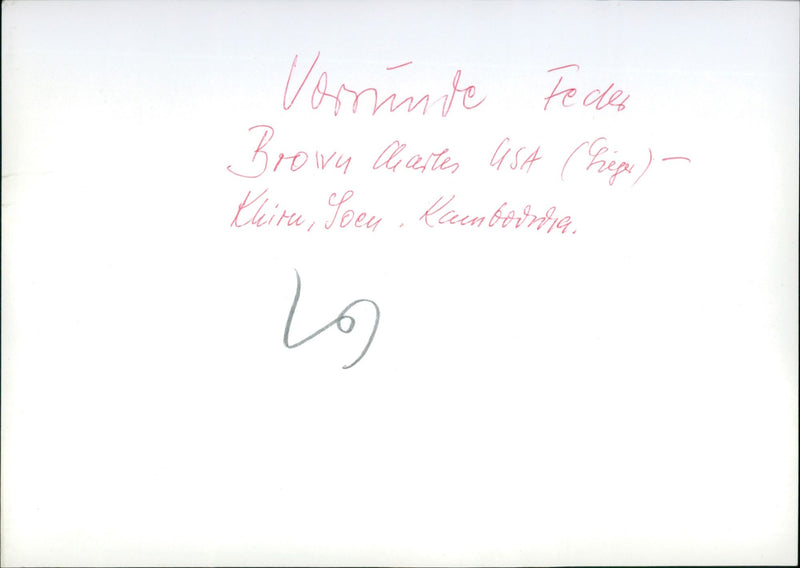 Vorrunde Feder
Brown Charles USA (Sieger) –
Khiru, Soeu . Kambodscha.